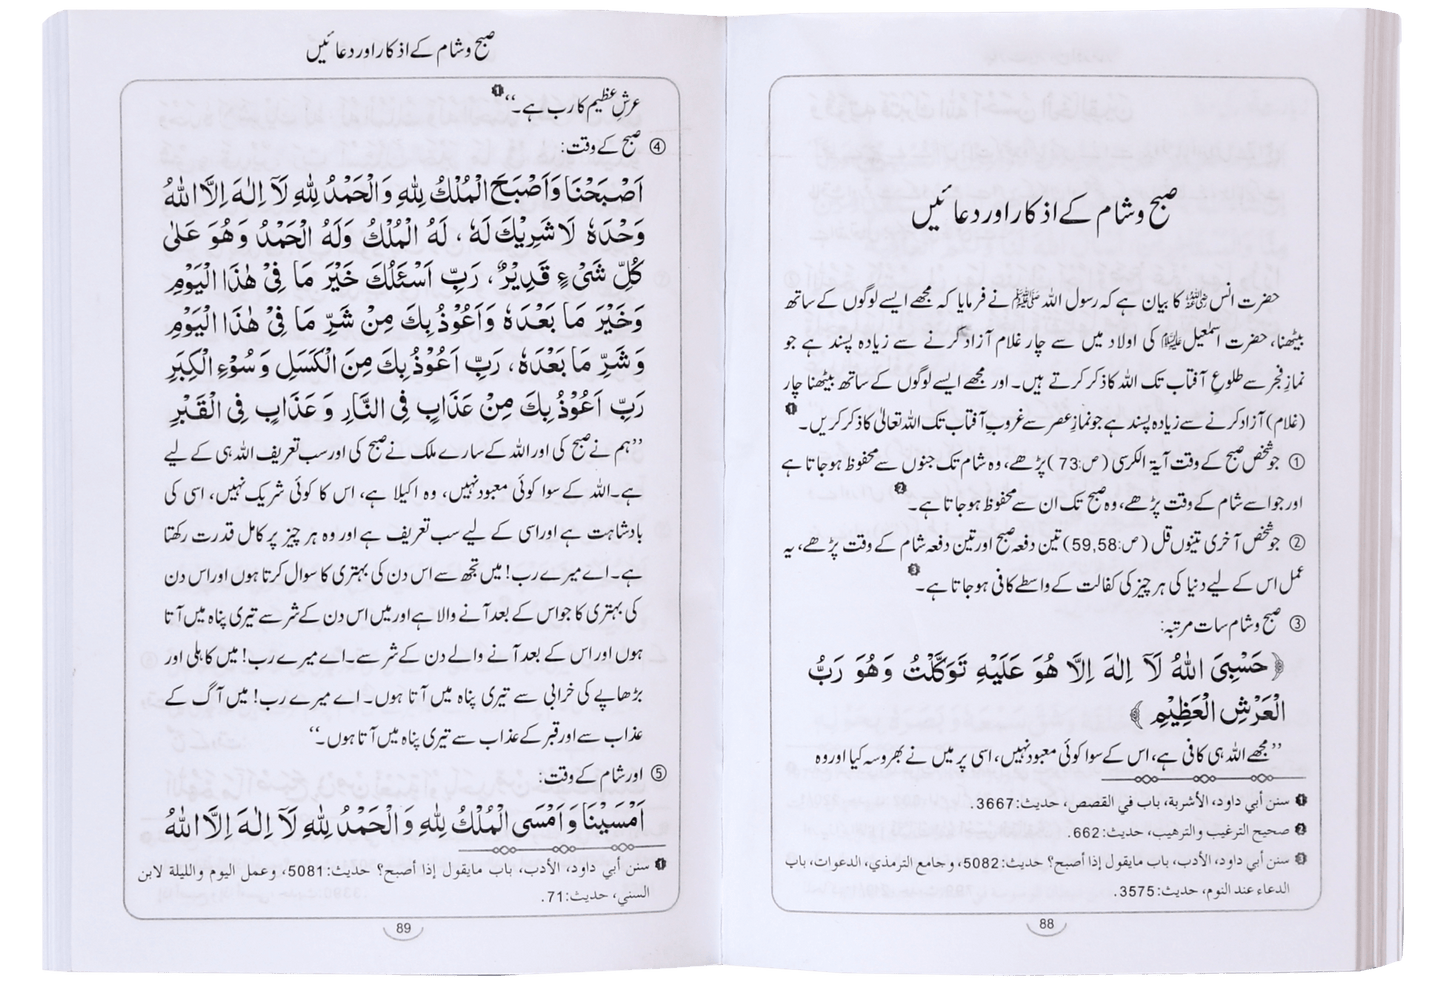 صبح و شام کے اذکار اور دعائیں
حضرت انس رضی اللہ عنہ کا بیان ہے کہ رسول اللہ ﷺ نے فرمایا کہ مجھے ایسے لوگوں کے ساتھ
بیٹھنا، حضرت اسمٰعیل علیہ السلام کی اولاد میں سے چار غلام آزاد کرنے سے زیادہ پسند ہے جو
نمازِ فجر سے طلوعِ آفتاب تک اللہ کا ذکر کرتے ہیں۔ اور مجھے ایسے لوگوں کے ساتھ بیٹھنا چار
(غلام) آزاد کرنے سے زیادہ پسند ہے جو نمازِ عصر سے غروب آفتاب تک اللہ تعالیٰ کا ذکر کریں۔ ❶
① جو شخص صبح کے وقت آیۃ الکرسی (ص:73) پڑھے، وہ شام تک جنوں سے محفوظ ہو جاتا ہے
اور جو اسے شام کے وقت پڑھے، وہ صبح تک ان سے محفوظ ہو جاتا ہے۔ ❷
② جو شخص آخری تینوں قل (ص:59,58) تین دفعہ صبح اور تین دفعہ شام کے وقت پڑھے، یہ
عمل اس کے لیے دنیا کی ہر چیز کی کفالت کے واسطے کافی ہو جاتا ہے۔ ❸
③ صبح و شام سات مرتبہ:
﴿حَسْبِیَ اللّٰہُ لَاۤ اِلٰہَ اِلَّا ھُوَ عَلَیْہِ تَوَکَّلْتُ وَھُوَ رَبُّ
الْعَرْشِ الْعَظِیْمِ﴾
’’مجھے اللہ ہی کافی ہے، اس کے سوا کوئی معبود نہیں، اسی پر میں نے بھروسہ کیا اور وہ
❶ سنن أبي داود، الأشربة، باب في القصص، حديث:3667.
❷ صحيح الترغيب والترهيب، حديث:662.
❸ سنن أبي داود، الأدب، باب مايقول إذا أصبح؟ حديث:5082، وجامع الترمذي، الدعوات، باب
الدعاء عند النوم، حديث:3575.
88
صبح و شام کے اذکار اور دعائیں
عرشِ عظیم کا رب ہے۔‘‘ ❶
④ صبح کے وقت:
اَصْبَحْنَا وَاَصْبَحَ الْمُلْكُ لِلّٰهِ وَالْحَمْدُ لِلّٰهِ لَاۤ اِلٰهَ اِلَّا اللّٰهُ
وَحْدَهٗ لَا شَرِیْكَ لَهٗ، لَهُ الْمُلْكُ وَلَهُ الْحَمْدُ وَهُوَ عَلٰی
كُلِّ شَیْءٍ قَدِیْرٌ، رَبِّ اَسْئَلُكَ خَیْرَ مَا فِیْ هٰذَا الْیَوْمِ
وَخَیْرَ مَا بَعْدَهٗ وَاَعُوْذُ بِكَ مِنْ شَرِّ مَا فِیْ هٰذَا الْیَوْمِ
وَشَرِّ مَا بَعْدَهٗ، رَبِّ اَعُوْذُ بِكَ مِنَ الْكَسَلِ وَسُوْءِ الْكِبَرِ
رَبِّ اَعُوْذُ بِكَ مِنْ عَذَابٍ فِی النَّارِ وَعَذَابٍ فِی الْقَبْرِ
’’ہم نے صبح کی اور اللہ کے سارے ملک نے صبح کی اور سب تعریف اللہ ہی کے لیے
ہے۔ اللہ کے سوا کوئی معبود نہیں، وہ اکیلا ہے، اس کا کوئی شریک نہیں، اسی کی
بادشاہت ہے اور اسی کے لیے سب تعریف ہے اور وہ ہر چیز پر کامل قدرت رکھتا
ہے۔ اے میرے رب! میں تجھ سے اس دن کی بہتری کا سوال کرتا ہوں اور اس دن
کی بہتری کا جو اس کے بعد آنے والا ہے اور میں اس دن کے شر سے تیری پناہ میں آتا
ہوں اور اس کے بعد آنے والے دن کے شر سے۔ اے میرے رب! میں کاہلی اور
بڑھاپے کی خرابی سے تیری پناہ میں آتا ہوں۔ اے میرے رب! میں آگ کے
عذاب سے اور قبر کے عذاب سے تیری پناہ میں آتا ہوں۔‘‘
⑤ اور شام کے وقت:
اَمْسَیْنَا وَاَمْسَی الْمُلْكُ لِلّٰهِ وَالْحَمْدُ لِلّٰهِ لَاۤ اِلٰهَ اِلَّا اللّٰهُ
❶ سنن أبي داود، الأدب، باب مايقول إذا أصبح؟ حديث:5081، وعمل اليوم والليلة لابن
السني، حديث:71.
89